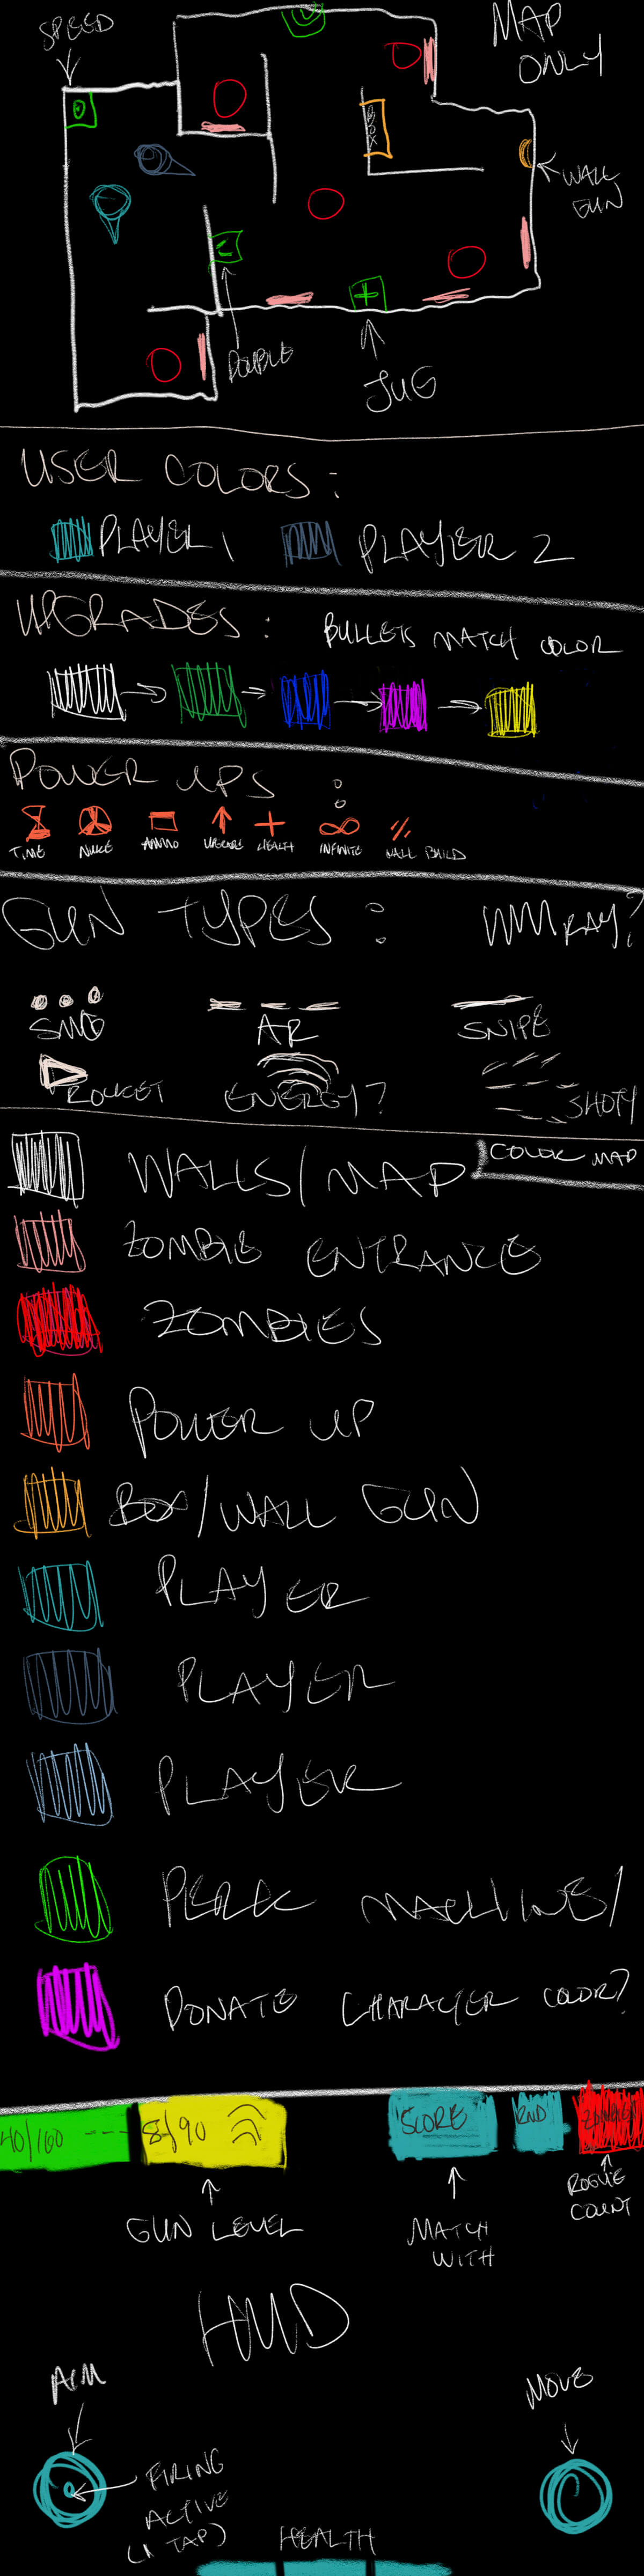 SPEED
MAP
ONLY
BOX
WALL
GUN
DOUBLE
JUG
USER COLORS:
PLAYER 1 PLAYER 2
UPGRADES: BULLETS MATCH COLOR
POWER UPS:
TIME NUKE AMMO UPGRADE HEALTH INFINITE WALL BUILD
GUN TYPES: RAY?
SMG AR SNIPE
ROCKET ENERGY? SHOTY
WALLS/MAP COLOR MAP
ZOMBIE ENTRANCE
ZOMBIES
POWER UP
BOX/WALL GUN
PLAYER
PLAYER
PLAYER
PERK MACHINES/
DONATE CHARACTER COLOR?
40/160 --- 8/90 SCORE RND ZOMBIES
GUN LEVEL
MATCH
WITH
ROGUE
COUNT
HUD
AIM MOVE
FIRING
ACTIVE
(1 TAP)
HEALTH